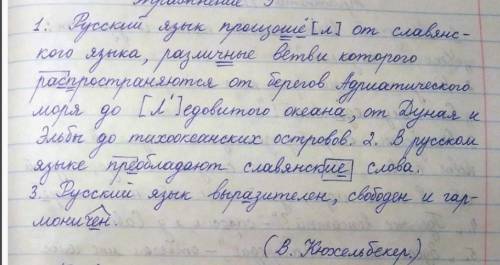 Упражнение 9
1. Русский язык произошё[л] от славянс-
кого языка, различные ветви которого
распространяются от берегов Адриатического
моря до [Л']едовитого океана, от Дуная и
Эльбы до тихоокеанских островов. 2. В русском
языке преобладают славянские слова.
3. Русский язык выразителен, свободен и гар-
моничен.
(В. Кюхельбекер.)